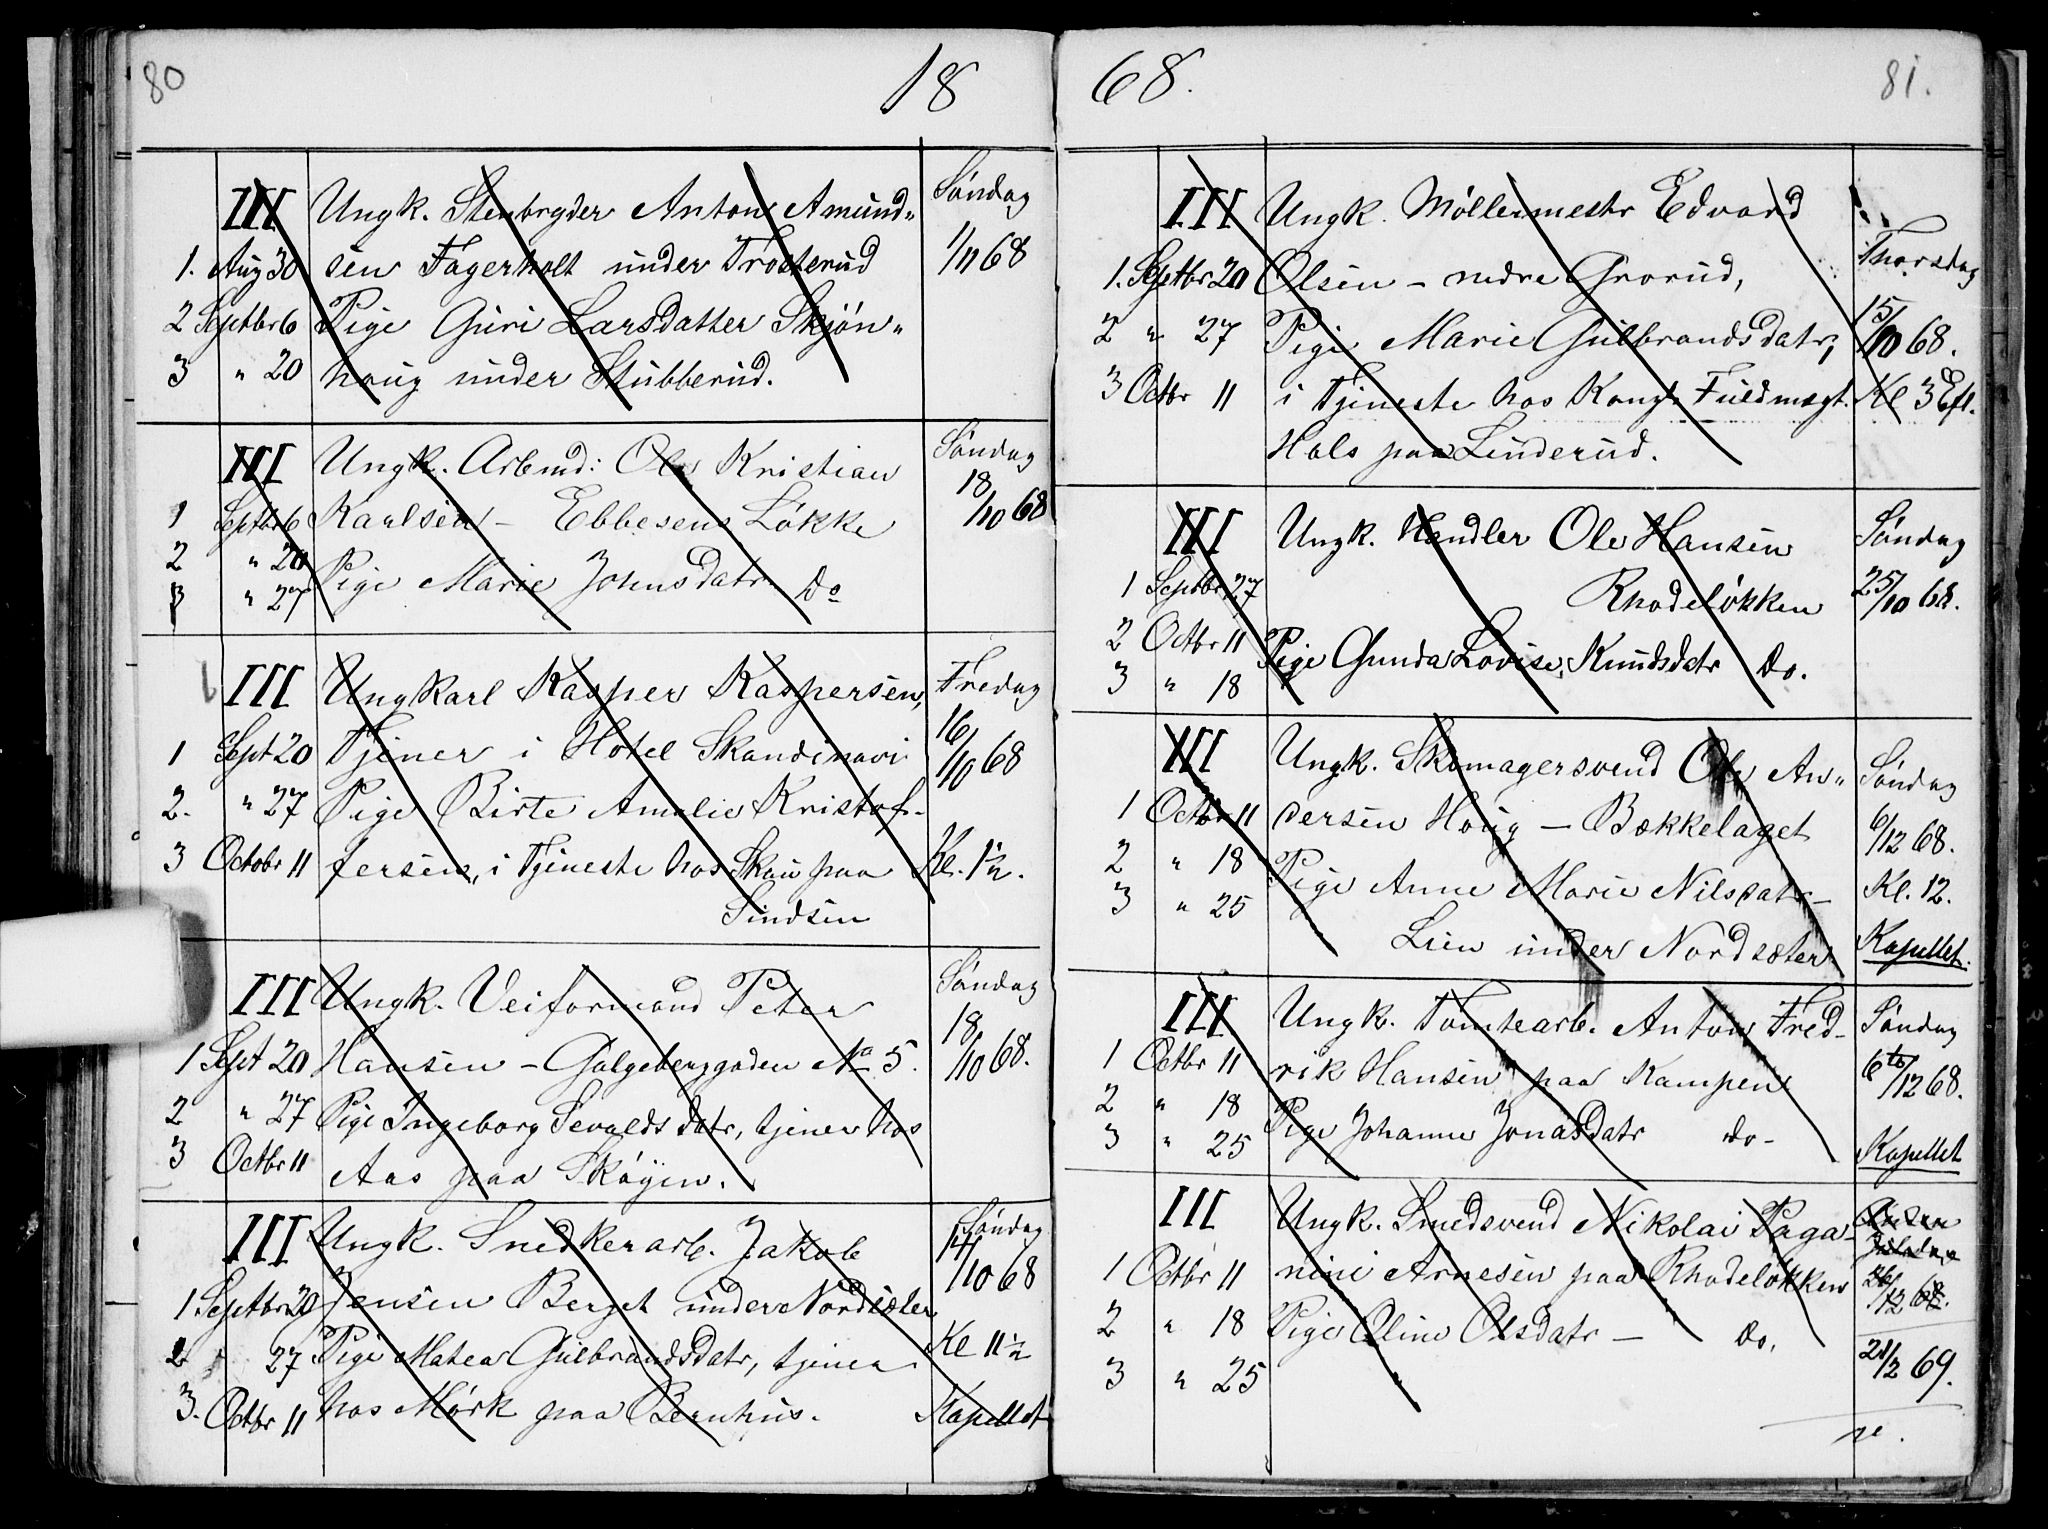 80
18
III Ungk. Stenbryder Anton Amund„ Søndag
1. Aug 30 sen Fagerholt under Trosterud 1/11 68
2 Septbr 6 Pige Guri Larsdatter Skjøn„
3 „ 20 haug under Stubberud.
III Ungk. Arbmd: Ole Kristian Søndag
1 Septbr 6 Karlsen – Ebbesens Løkke 18/10 68
2 „ 20 Pige Marie Johnsdatr Do
3 „ 27
III Ungkarl Kasper Kaspersen, Fredag
1 Sept 20 Tjener i Hotel Skandinavi 16/10 68
2. „ 27 Pige Birte Amalie Kristof-
3 Octobr 11 fersen, i Tjeneste hos Skau paa Kl. 1½.
Sindsen
III Ungk. Veiformand Peter Søndag
1 Sept 20 Hansen – Galgeberggaden No 5. 18/10 68.
2 „ 27 Pige Ingeborg Sevaldsdatr, tjener hos
3 Octbr 11 Aas paa Skøyen.
III Ungk. Snedkerarb. Jakob Søndag
1 Septbr 20 Jensen Berget under Nordsæter /10 68
2 27 Pige Matea Gulbrandsdatr, tjener Kl 11½
3. Octbr 11 hos Mørk paa Bernhus. Kapellet
68.
81.
III Ungk. Møllermestr Edvard
1. Septbr 20 Olsen – nedre Grorud, Thorsdag
2 „ 27 Pige Marie Gulbrandsdatr, 15/10 68.
3 Octbr 11 i Tjeneste hos Kongs Fuldmægt. Kl 3 Eft.
Hals paa Linderud.
III Ungk. Handler Ole Hansen Søndag
1 Septbr 27 Rhodeløkken 25/10 68.
2 Octbr 11 Pige Gunda Lovise Knudsdatr Do.
3 „ 18
III Ungk. Skomagersvend Ole An„ Søndag
1 Octbr 11 dersen Houg – Bækkelaget 6/12 68.
2 „ 18 Pige Anne Marie Nilsdatr – Kl. 12.
3 „ 25 Lien under Nordsæter Kapellet.
III Ungk. Tomtearb. Anton Fred- Søndag
1 Octbr 11 rik Hansen paa Kampen 6te/12 68.
2 „ 18 Pige Johanne Jonasdatr do-
3 „ 25 Kapellet
III Ungk. Smedsvend Nikolai Paga- Anden
Juledag
1 Octbr 11 nini Arnesen paa Rhodeløkken 26/12 68.
2 „ 18 Pige Oline Olsdatr – Do.
3 „ 25 21/2 69.